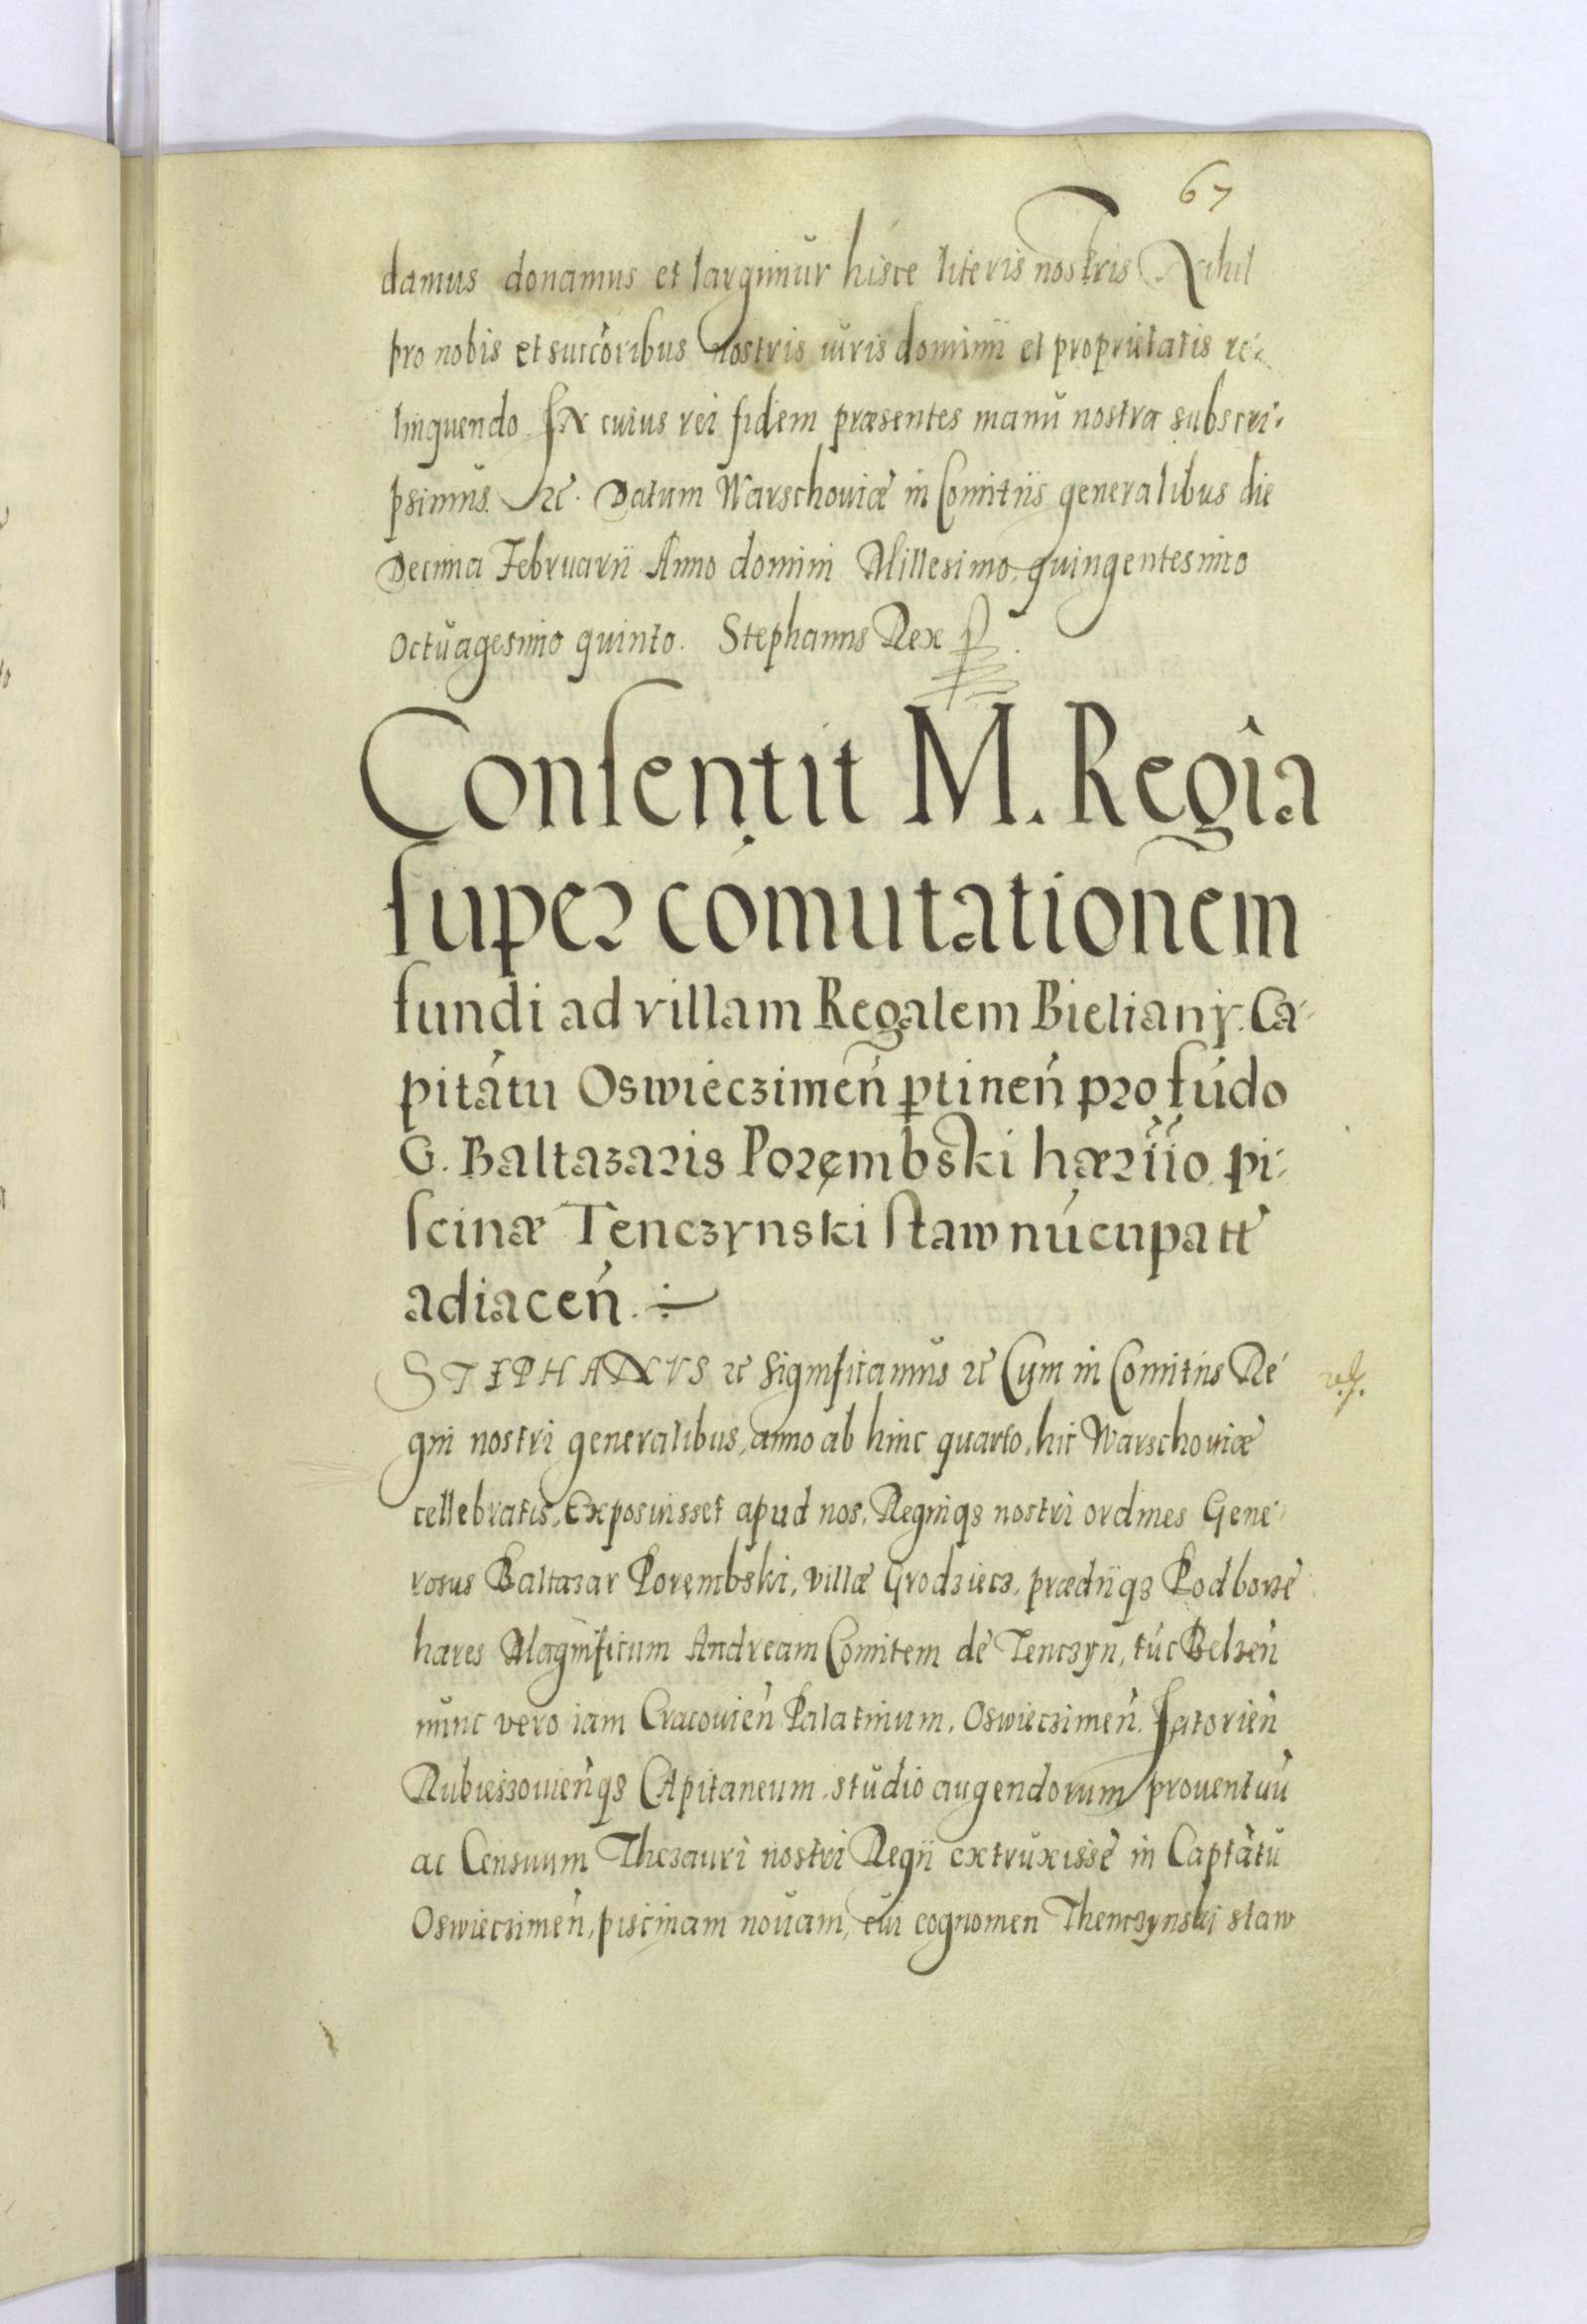 67
damus donamus et largimur hisce literis nostris Nihil
pro nobis et succoribus nostris iuris dominii et proprietatis re-
linquendo IN cuius rei fidem præsentes manu nostra subscri-
psimus. etc. Datum Warschoviæ in Comitiis generalibus die
Decima Februarii Anno domini Millesimo quingentesimo
Octuagesimo quinto. Stephanus Rex
Consentit M. Regia
super comutationem
fundi ad villam Regalem Bieliany. Ca-
pitatu Oswieczimen̄ ꝑtinen̄ pro fūdo
G. Baltazaris Porembski hæriio pi-
scinæ Tenczynski staw nūcupatæ
adiacen̄.
STEPHANVS etc significamus etc Cum in Comitiis Re-
gni nostri generalibus, anno ab hinc quarto, hic Warschoviæ
cellebratis, Exposuisset apud nos, Regniq₃ nostri ordines Gene-
rosus Baltazar Porembski, villæ Grodziecz, prædiiq₃ Podborze
hæres Magnificum Andream Comitem de Tenczyn, tūc Belzen̄
nunc vero iam Cracovien̄ Palatinum, Oswieczimen̄. Zatorien̄
Rubieszovien̄q₃ CApitaneum, studio augendorum proventuū
ac Censuum Thesauri nostri Regii extruxisse in Captātu
Oswieczimen̄, piscinam novam, cui cognomen Thenczynski staw